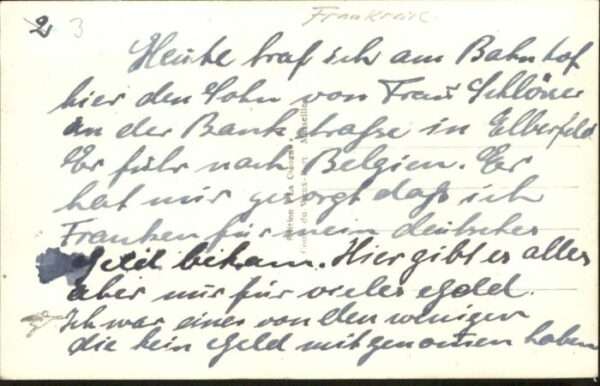 2 3
Frankreich.
Heute traf ich am Bahnhof
hier den Sohn von Frau Schlöner
an der Bankstraße in Elberfeld
Er fuhr nach Belgien. Er
hat mir gesorgt daß ich
Franken für mein deutsches
Geld bekam. Hier gibt es alles
aber nur für vieles Geld.
Ich war eines von den wenigen
die kein Geld mitgenommen haben
Marseille